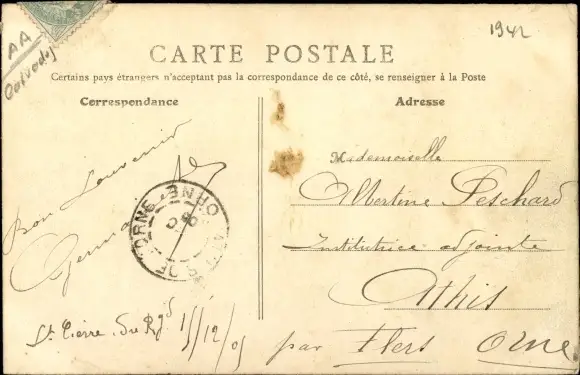 1942
AA
Calvados
CARTE POSTALE
Certains pays étrangers n'acceptant pas la correspondance de ce côté, se renseigner à la Poste
Correspondance
Adresse
bon Souvenir
Germaine
St Pierre du Rgd 15/12/05
ORNE ORNE
Mademoiselle
Albertine Peschard
Institutrice adjointe
Athis
par Flers Orne